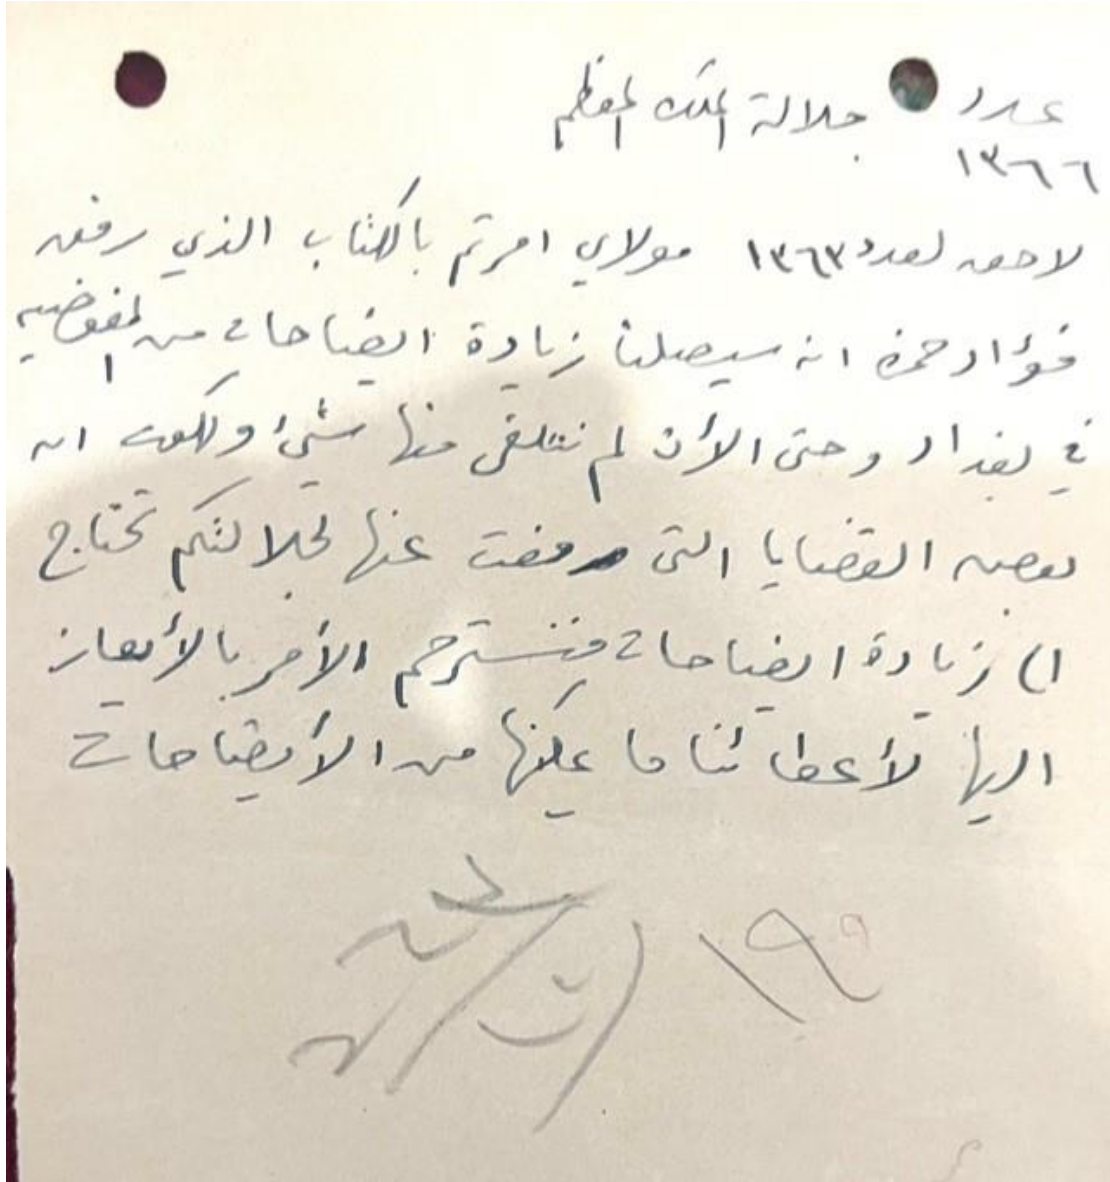 عدد جلالة الملك المعظم
١٣٦٦
لاحقه لعدد ١٣٦٣ مولاي امرتم بالكتاب الذي رفعه
فؤاد حمزه انه سيصلنا زيادة ايضاحات من المفوضيه
في بغداد وحتى الأن لم نتلقى منها شيئ ولكون ان
بعض القضايا التى رفعت عنها لجلالتكم تحتاج
الى زيادة ايضاحات فنسترحم الأمر بالأيعاز
اليها لأعطائنا ما يمكنها من الأيضاحات
١٩